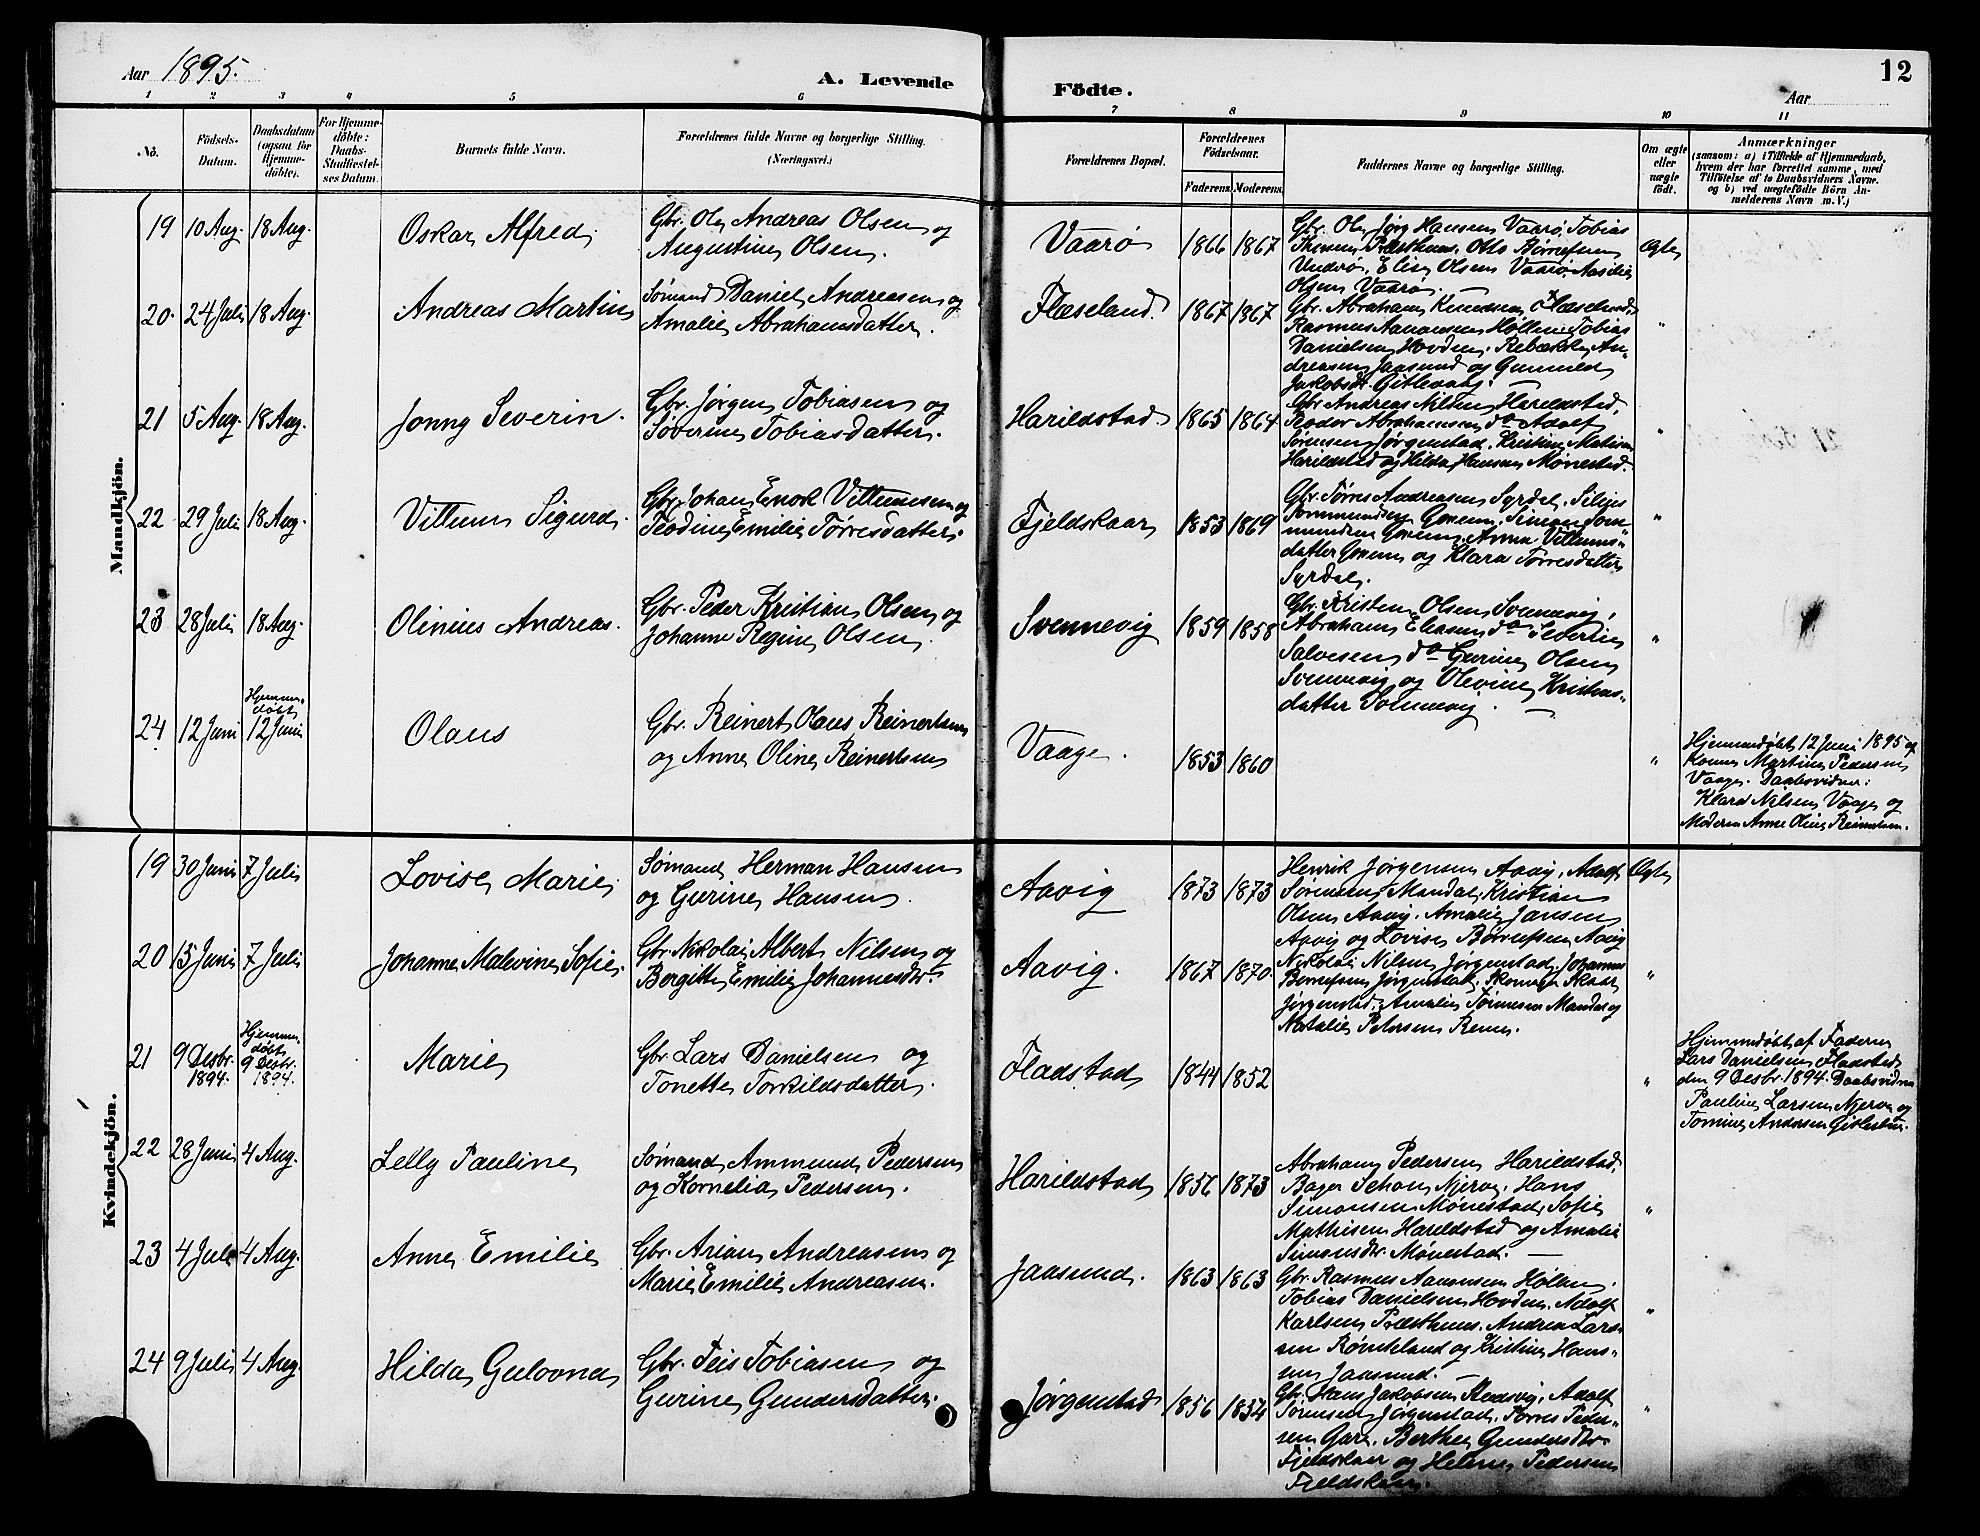 Aar 1895.
A. Levende Födte.
12
Aar
1 2 3 4 5 6 7 8 9 10 11
No.
Födsels-Datum.
Daabsdatum (ogsaa for Hjemmedöbte).
For Hjemmedöbte: Daabs-Stadfæstelses Datum.
Barnets fulde Navn.
Forældrenes fulde Navne og borgerlige Stilling. (Næringsvei.)
Forældrenes Bopæl.
Forældrenes Fødselsaar.
Faderens. Moderens.
Faddernes Navne og borgerlige Stilling.
Om ægte eller uægte født.
Anmærkninger
(saasom: a) i Tilfælde af Hjemmedaab, hvem der har forrettet samme, med Tilföielse af to Daabsvidners Navne, og b) ved uægtefödte Börn Anmelderens Navn m.V.)
Mandkjön.
19 10 Aug. 18 Aug. Oskar Alfred. Gbr. Ole Andreas Olsen og
Augustine Olsen. Vaarø 1866 1867 Ægte
Gbr. Ole Jørg Hansen Vaarø, Tobias
Præsthuus. Otto Børresen
Underø, Elise Olsen Vaarø
Olsen Vaarø.
20. 24 Juli 18 Aug. Andreas Martin Sømand Daniel Andreasen og
Amalie Abrahamsdatter. Flæseland. 1867 1867 "
Gbr. Abraham Knudsen Flæseland,
Rasmus Aanonsen Høllen, Tobias
Danielsen Hovden. Rebækka An-
dreasen Jaasund og Gunnild
Jakobsdt. Gitlevaag.
21 5 Aug. 18 Aug. Jonny Severin. Gbr. Jørgen Tobiasen og
Severine Tobiasdatter. Harildstad. 1865 1864 "
Gbr. Andreas Nilsen Harildstad,
Teodor Abrahamsen do Adolf
Sørensen Jørgenstad. Kristine Matisen
Harildstad og Hilda Hansen Mønestad.
22 29 Juli 18 Aug. Villum Sigurd. Gbr. Johan Enok Villumsen og
Teodine Emilie Torresdatter. Fjeldskaar 1853 1869 "
Gbr. Tørres Andreasen Syrdal, Silius
datter og Klara Torresdatter
Syrdal.
23 28 Juli 18 Aug. Olinius Andreas. Gbr. Peder Kristian Olsen og
Johanne Regine Olsen. Svennevig 1859 1858 "
Gbr. Kristen Olsen Svennevig,
Abraham Eliasen do Severin
Salvesen do Gurine Olsen
Svennevig og Olevine Kristens-
datter Svennevig.
24 12 Juni Hjemme-
døbt
12 Juni Olaus Gbr. Reinert Olaus Reinertsen
og Anne Oline Reinertsen Vaage. 1853 1860 "
Hjemmedøbt 12 Juni 1895 af
Konen Martine Pedersen
Vaage. Daabsvidner:
Klara Nilsen Vaage og
Moderen Anne Oline Reinertsen.
Kvindekjön.
19 30 Juni 7 Juli Lovise Marie. Sømand Herman Hansen
og Gurine Hansen. Aavig 1873 1873 Ægte
Henrik Jørgensen Aavig, Adolf
Sørensen Mandal, Kristian
Olsen Aavig. Amalie Jansen
Aavig og Lovise Børresen Aavig
20 15 Juni 7 Juli Johanne Malvine Sofie. Gbr. Nikolai Albert Nilsen og
Borgitte Emilie Johannesdtr. Aavig. 1867 1870. "
Nikolai Nilsen Jørgenstad, Johannes
Berntsen Jørgenstad. Skomager Skaar
Jørgenstad. Amalie Tønnesen Mandal og
Natalie Petersen
21 9 Desbr. 1894. Hjemme-
døbt
9 Desbr. 1894. Marie Gbr. Lars Danielsen og
Tonette Torkildsdatter. Fladstad 1844 1852 "
Hjemmedøbt af Faderen
Lars Danielsen Fladstad
den 9 Desbr. 1894. Daabsvidner
Pauline Larsen Njerve og
Tomine Andersen
22 28 Juni 4 Aug. Lelly Pauline Sømand Ammund Pedersen
og Kornelia Pedersen. Harildstad 1856 1873 "
Abraham Pedersen Harildstad,
Bager Schou Njerve. Hans
Simonsen Mønestad, Sofie
Mathisen Harildstad og Amalie
Simonsdtr. Mønestad.
23 4 Juli 4 Aug. Anne Emilie Gbr. Arian Andreasen og
Marie Emilie Andreasen. Jaasund. 1863 1863 "
Gbr. Rasmus Aanonsen Høllen,
Tobias Danielsen Hovden, Adolf
Karlsen Præsthuus. Andrea Lar-
sen og Kristine Han-
sen Jaasund.
24 9 Juli 4 Aug. Hilda Gulovna Gbr. Teis Tobiasen og
Gurine Gundersdatter. Jørgenstad 1856 1854 "
Gbr. Hans Jakobsen Adolf
Sørensen Jørgenstad. Torres Peder-
sen Gare. Berthe Gundersdtr.
Fjeldskaar og Helene Pedersen
Fjeldskaar.